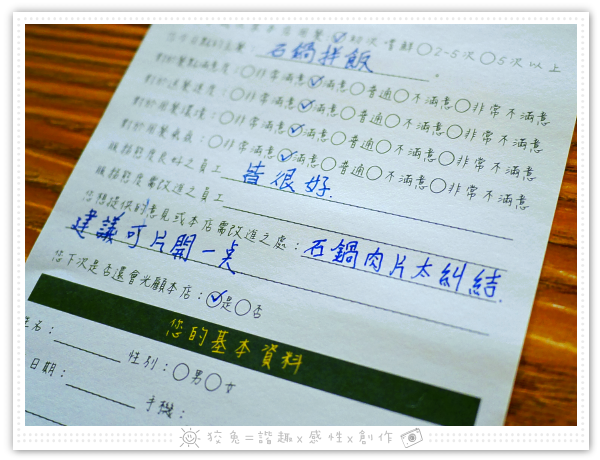 初次嚐鮮○2-5次○5次以上
石鍋拌飯
對於餐點滿意度：○非常滿意☑滿意○普通○不滿意○非常不滿意
對於送餐速度：○非常滿意☑滿意○普通○不滿意○非常不滿意
對於用餐環境：○非常滿意☑滿意○普通○不滿意○非常不滿意
對於用餐氣氛：○非常滿意☑滿意○普通○不滿意○非常不滿意
服務態度良好之員工 皆很好.
服務態度需改進之員工
您想提供的意見或本店需改進之處：石鍋肉片太糾結.
建議可片開一点
您下次是否還會光顧本店：☑是○否
您的基本資料
姓名： 性別：○男○女
日期： 手機：
狡兔=諧趣x感性x創作